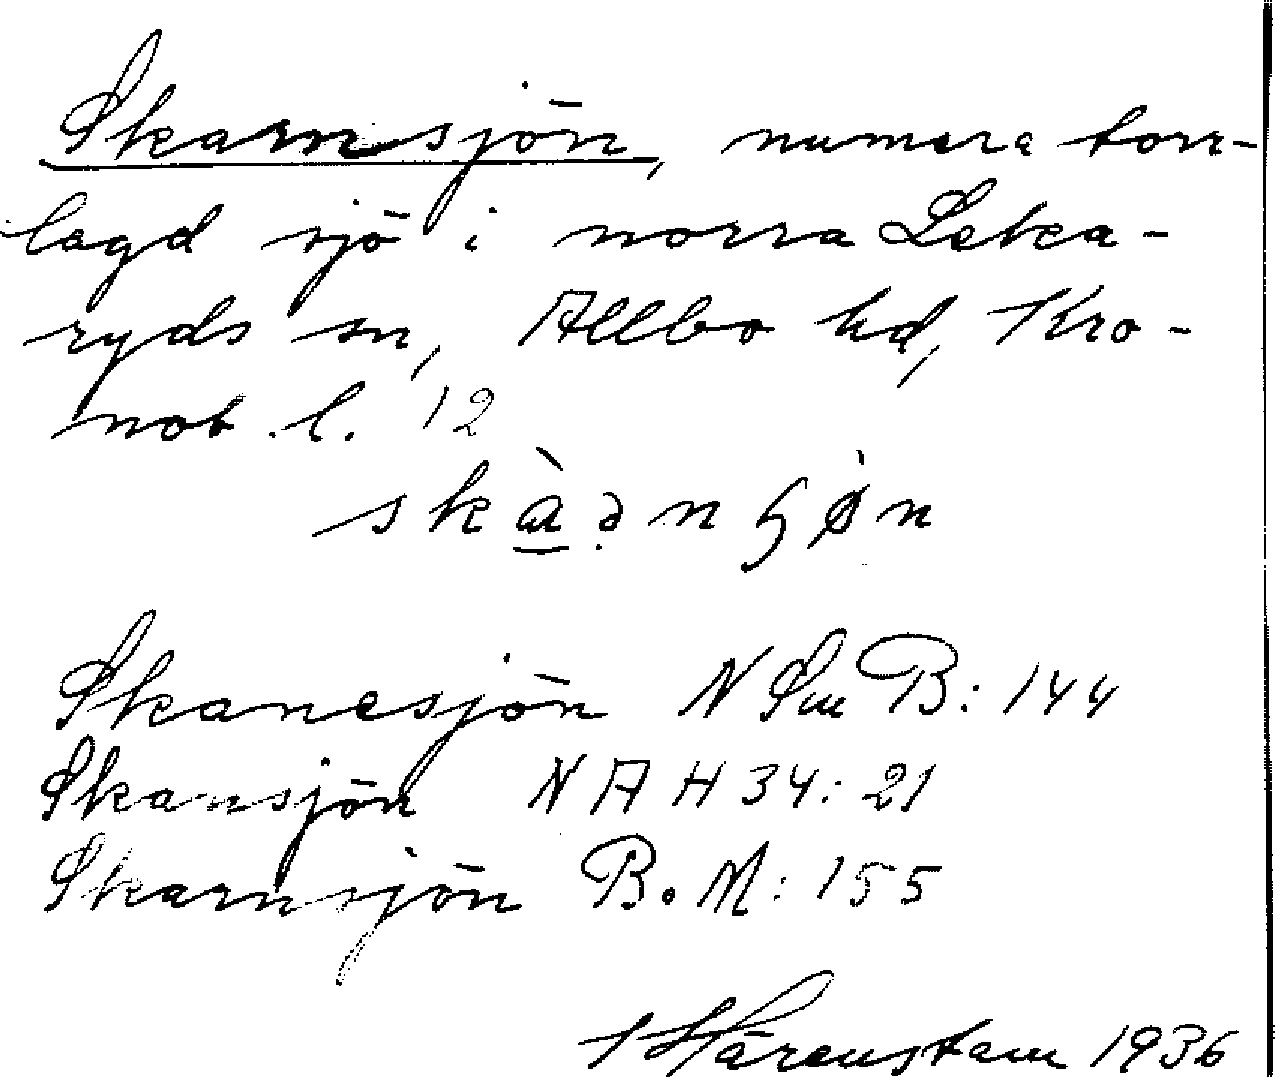 Skarnsjön, numera torr-
lagd sjö i norra Leka-
ryds sn, Allbo hd, Kro-
nob. l. 12
Skanesjön N Sm B: 144
Skansjön N A H 34: 21
Skarnsjön B. M: 155
Härenstam 1936